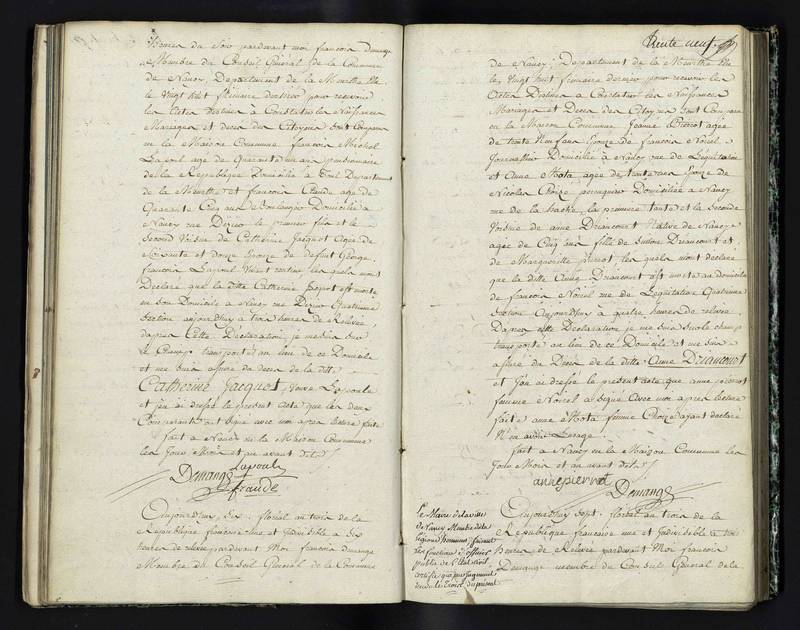 heures du Soir pardevant moi francois demange
Membre du Conseil Général de la Commune
de Nancy, Departement de la Meurthe élu
le vingt huit frimaire dernier pour recevoir
les Actes destinés à Constater les Naissances
Mariages et deces des Citoyens Sont Comparu
en la Maison Commune francois Michel
Lapoul agé de Quarante un ans pensionnaire
de la Republique Domicilié à Toul Departement
de la Meurthe et francois Claude agé de
Quarante Cinq ans Boulanger Domicilié à
Nancy rue le premier fils et le
Second Voisin de Catherine Jacquot agée de
Soixante et douze Epouse de deffunt George
francois Lapoul les quels mont
Declaré que la ditte Catherine Jacquot est morte
en son Domicile à Nancy rue quatrieme
Section aujourdhuy à trois heures de Relevée,
dapres Cette Declaration je me suis sur
le Champ transporté au lieu de ce Domicile
et me suis assuré du deces de la ditte
Catherine Jacquot, veuve Lapoule
et j'en ai dressé le present acte que les deux
Comparants ont signé avec moi apres lecture faite
fait à Nancy en la Maison Commune
les Jour Mois et an avant dits
Lapoul
Demange
Aujourdhuy Six floréal an trois de la
Republique francoise une et Indivisible à Six
heures de relevée pardevant Moi francois demange
Membre du Conseil Général de la Commune
Trente neuf
de Nancy, Departement de la Meurthe élu
le vingt huit frimaire dernier pour recevoir les
Actes Destinés à Constater les Naissances
Mariages et Deces des Citoyens Sont Comparu
en la Maison Commune Jeanne Pierrot agée
de trente Neuf ans Epouse de francois Noirel
Journallier Domicilié à Nancy rue de Legalitation
et Anne Hota agée de trente ans Epouse de
Nicolas Choize perruquier Domiciliée à Nancy
rue de la la premiere tante et la Seconde
Voisine de anne Driancourt Native de Nancy
agée de Cinq ans fille de Driancourt et
de Marguerite pierrot les quels mont declaré
que la ditte Anne Driancourt est morte au domicile
de francois Noirel rue de quatrieme
Section Aujourdhuy à quatre heures de relevée.
Dapres cette Declaration je me suis sur le champ
transporté au lieu de ce Domicile et me suis
assuré du Deces de la ditte Anne Driancourt
et j'en ai dressé le present acte que anne pierrot
femme Noirel a Signé avec moi apres lecture
faite anne Hota femme Choize ayant declaré
N'en avoir l'usage.
fait à Nancy en la Maison Commune les
Jour Mois et an avant dits
anne pierrot
Demange
Le Maire de la ville
de Nancy Membre de la
légion d'honneur, faisant
les fonctions d'officier
public de l'Etat civil
certifie que par jugement
Aujourdhuy Sept floréal an trois de la
Republique francoise une et Indivisible à
heures de Relevée pardevant Moi francois
Demange membre du Conseil Général de la